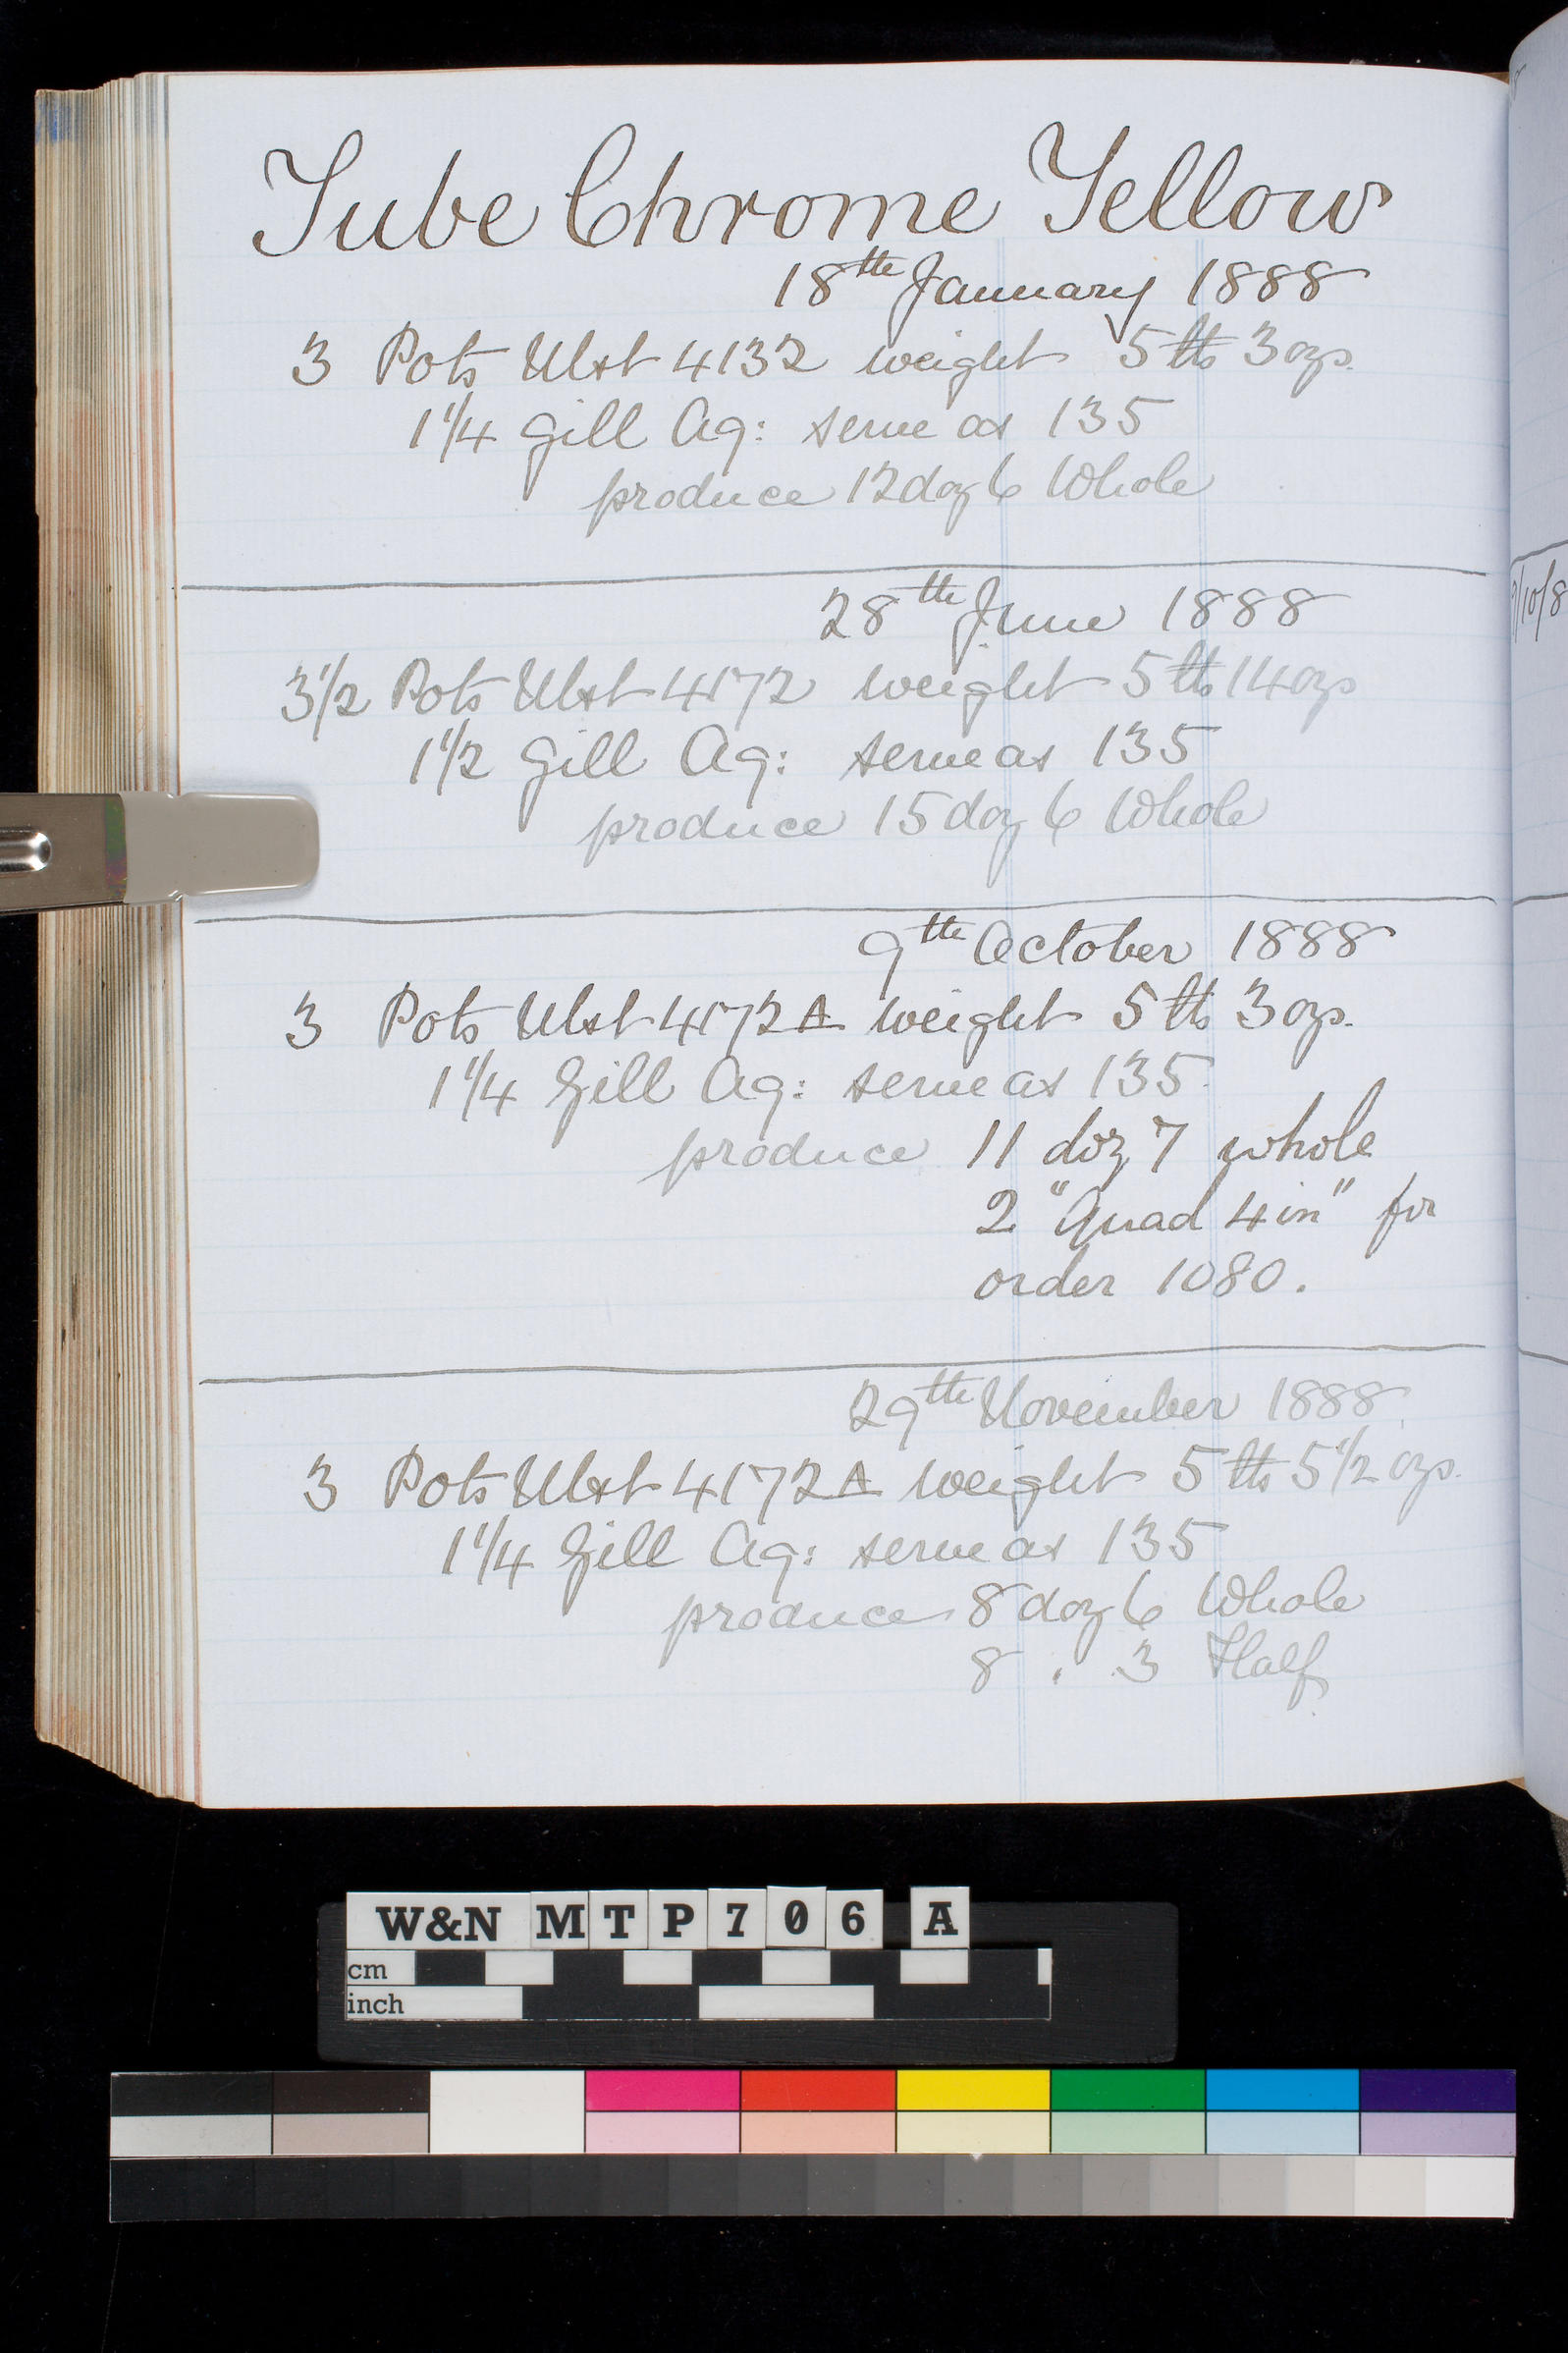 Tube Chrome Yellow
18th January 1888
3 Pots Ulst 4132 weight 5 lbs 3 ozs.
1 1/4 Gill Aq: serve as 135
produce 12 doz 6 Whole
28th June 1888
3 1/2 Pots Ulst 4172 weight 5 lbs 14 ozs
1 1/2 Gill Aq: serve as 135
produce 15 doz 6 Whole
9th October 1888
3 Pots Ulst 4172A weight 5 lbs 3 ozs.
1 1/4 Gill Aq: serve as 135
produce 11 doz 7 whole
2 "Quad 4 in" for
order 1080.
29th November 1888
3 Pots Ulst 4172A weight 5 lbs 5 1/2 ozs.
1 1/4 Gill Aq: serve as 135
produce 8 doz 6 Whole
8 . 3 Half
W&N MTP706 A
cm
inch